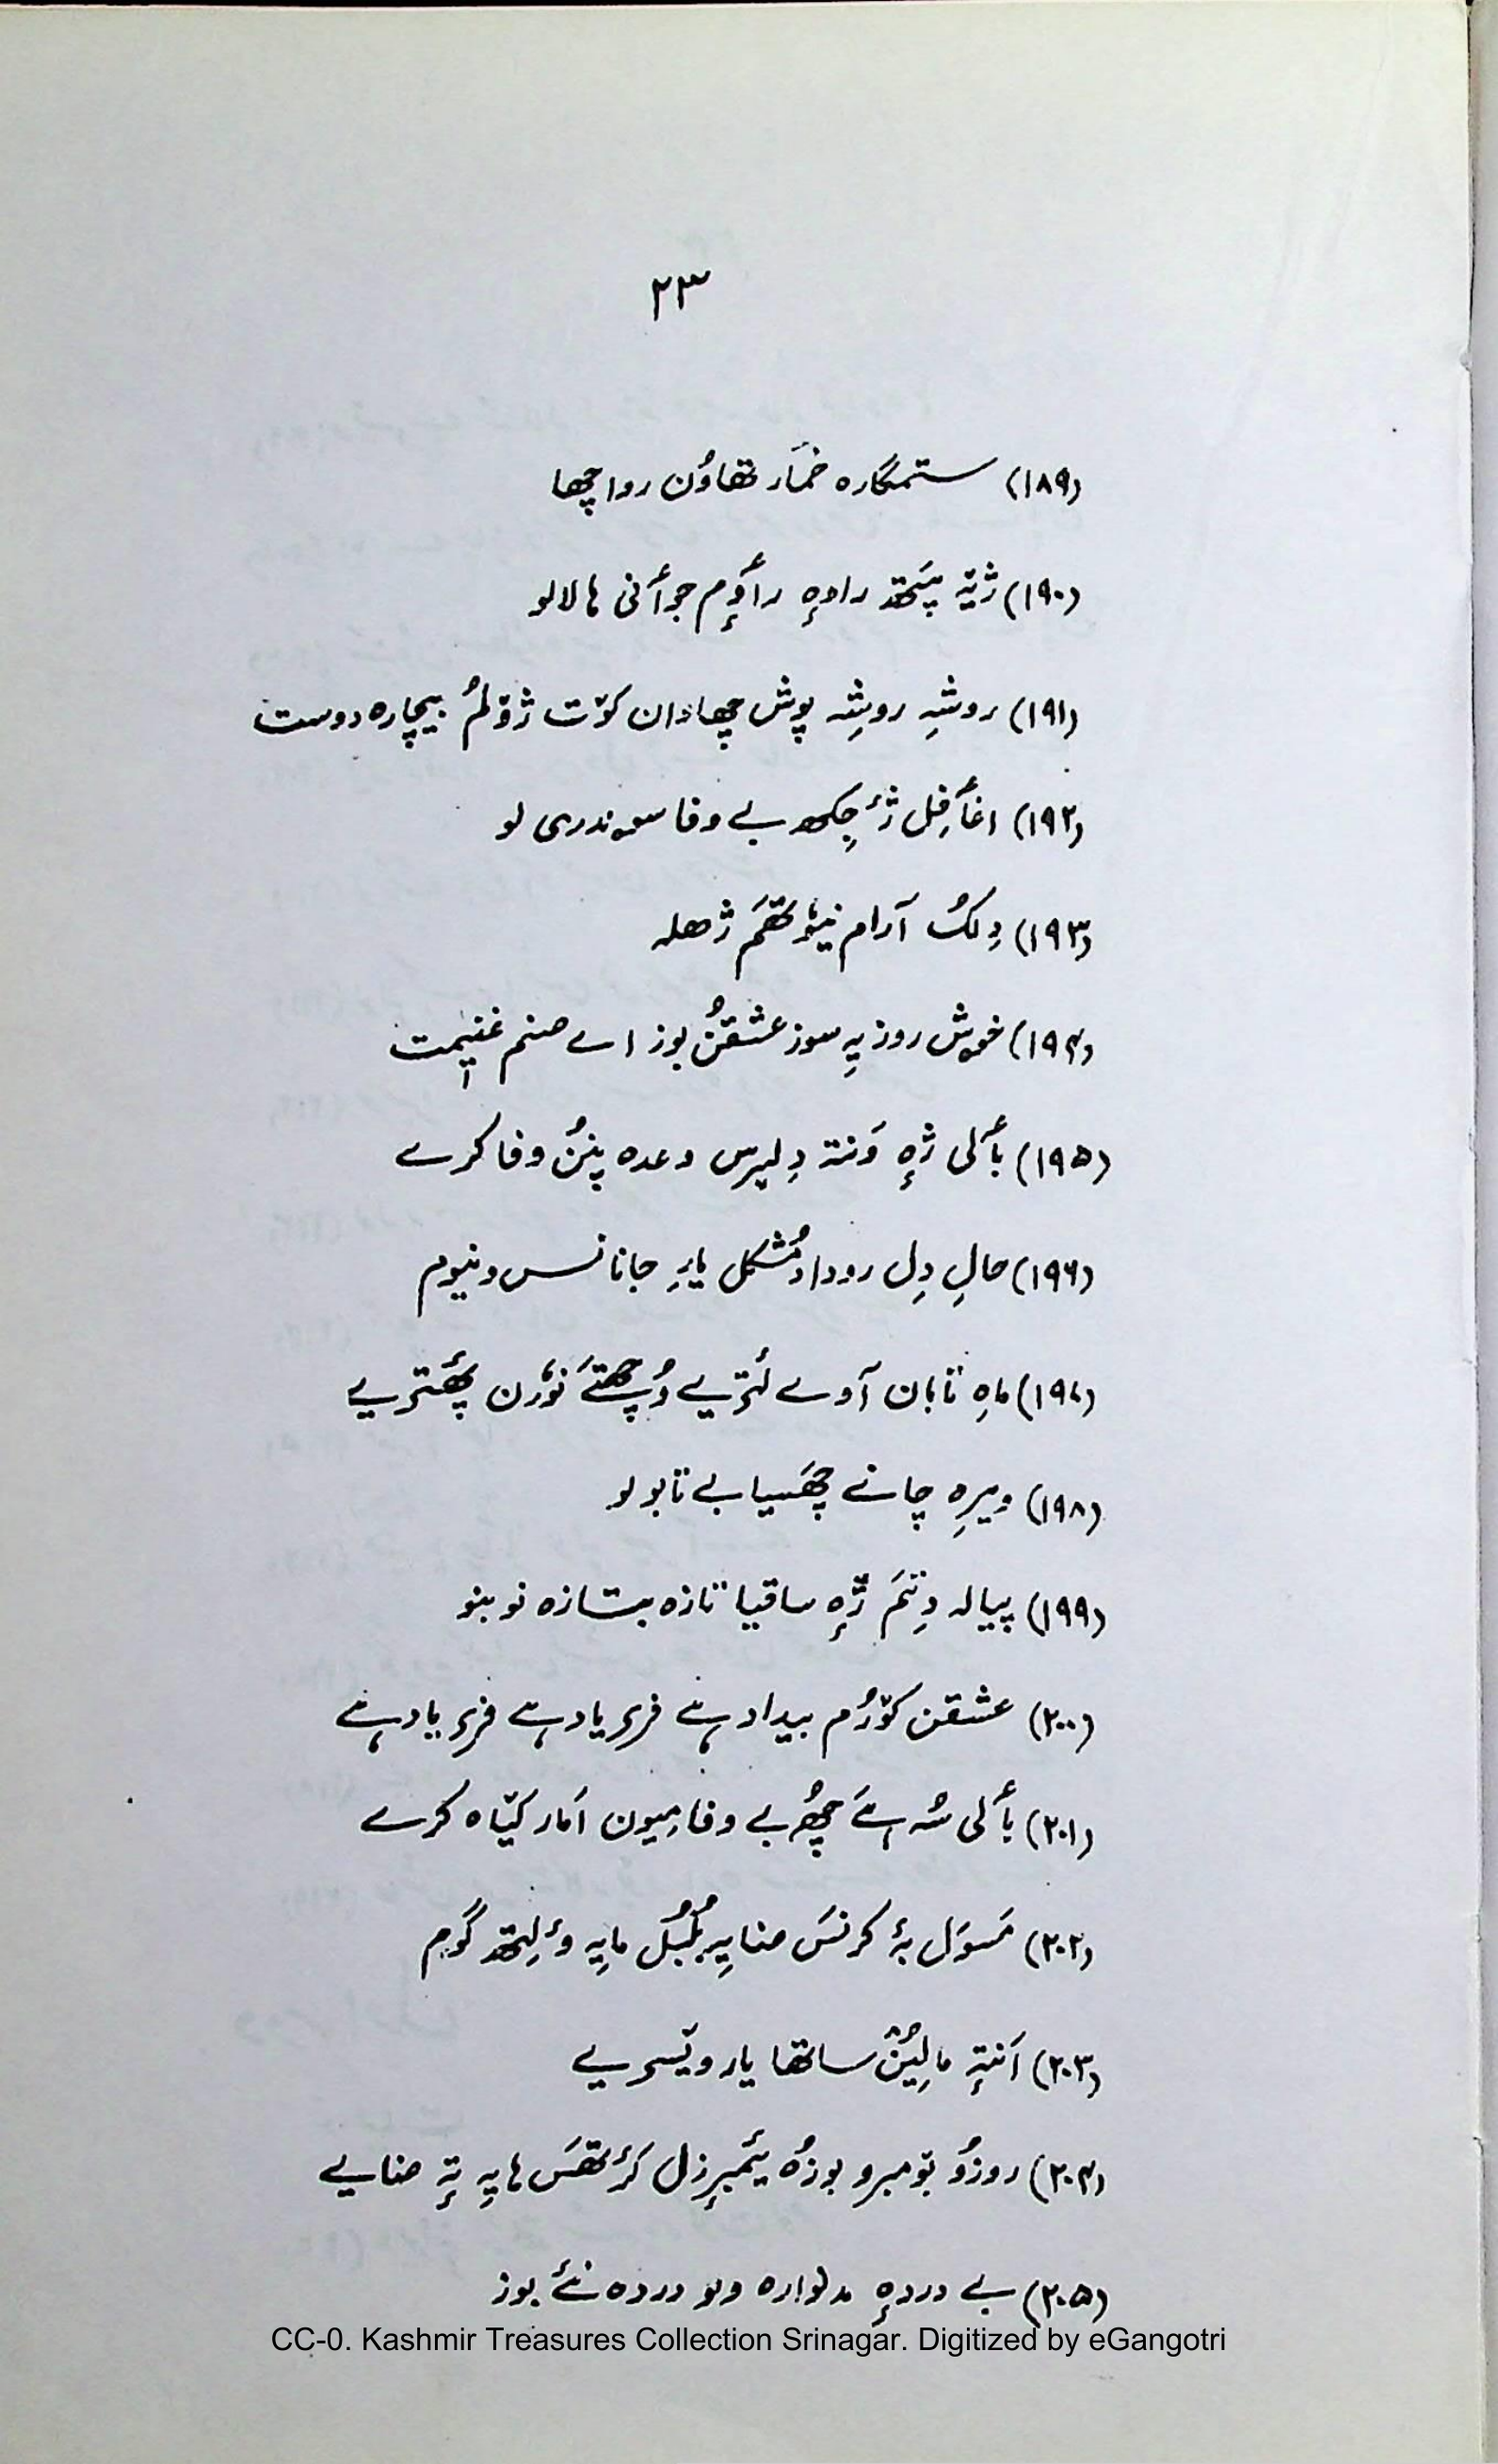 ۲۳
(۱۸۹) ستمگارہ خمَار تھاوُن روا چھا
(۱۹۰) ژیۃ پَتھ راوہٕ رٲوٕم جوٲنی ہا لالو
(۱۹۱) روشہِ روشِہ پوش چھاوان کوٚت ژوٚلمُ بیچارہ دوست
(۱۹۲) اغٲفِل ژٔ چِکھ بے وفا سوندری لو
(۱۹۳) دِلکُ آرام نیوٗتھَم ژھلہ
(۱۹۴) خوش روز یہِ سوز عشقنُ بوز اے صنم غنیٖمت
(۱۹۵) بٲلی ژٕہ وَنتہ دِلبرس وعدہ پننُ وفا کرے
(۱۹۶) حالِ دِل روداد مُشکل یارِ جانانس ونیوم
(۱۹۷) ماہِ تابان آوے لٔتریے وُچھتَے نوٗرن پھٔتریے
(۱۹۸) ویرِہ چانے چھَسیا بے تابو لو
(۱۹۹) پیالہ دِتَم ژٕہ ساقیا تازہ بتازہ نو بنو
(۲۰۰) عشقن کوٚرُم بیداد ہے فریاد ہے فریاد ہے
(۲۰۱) بٲلی سُہ ہَے چھُے بے وفا میون اَمار کیٛاہ کرے
(۲۰۲) مَسوَل بۂ کرنسَ ضایہِ بُلبُل مایہِ ؤلِتھ گوم
(۲۰۳) اَنتہٕ مالیُن ساتھا یار ویٚسریے
(۲۰۴) روزُو بومبرو بوزُہ یٔمبرٕزل کرٔتھَس ہایہِ تہٕ ضایے
(۲۰۵) بے دردہٕ مدلوارہ ولو دردہ نَے بوز
CC-0. Kashmir Treasures Collection Srinagar. Digitized by eGangotri